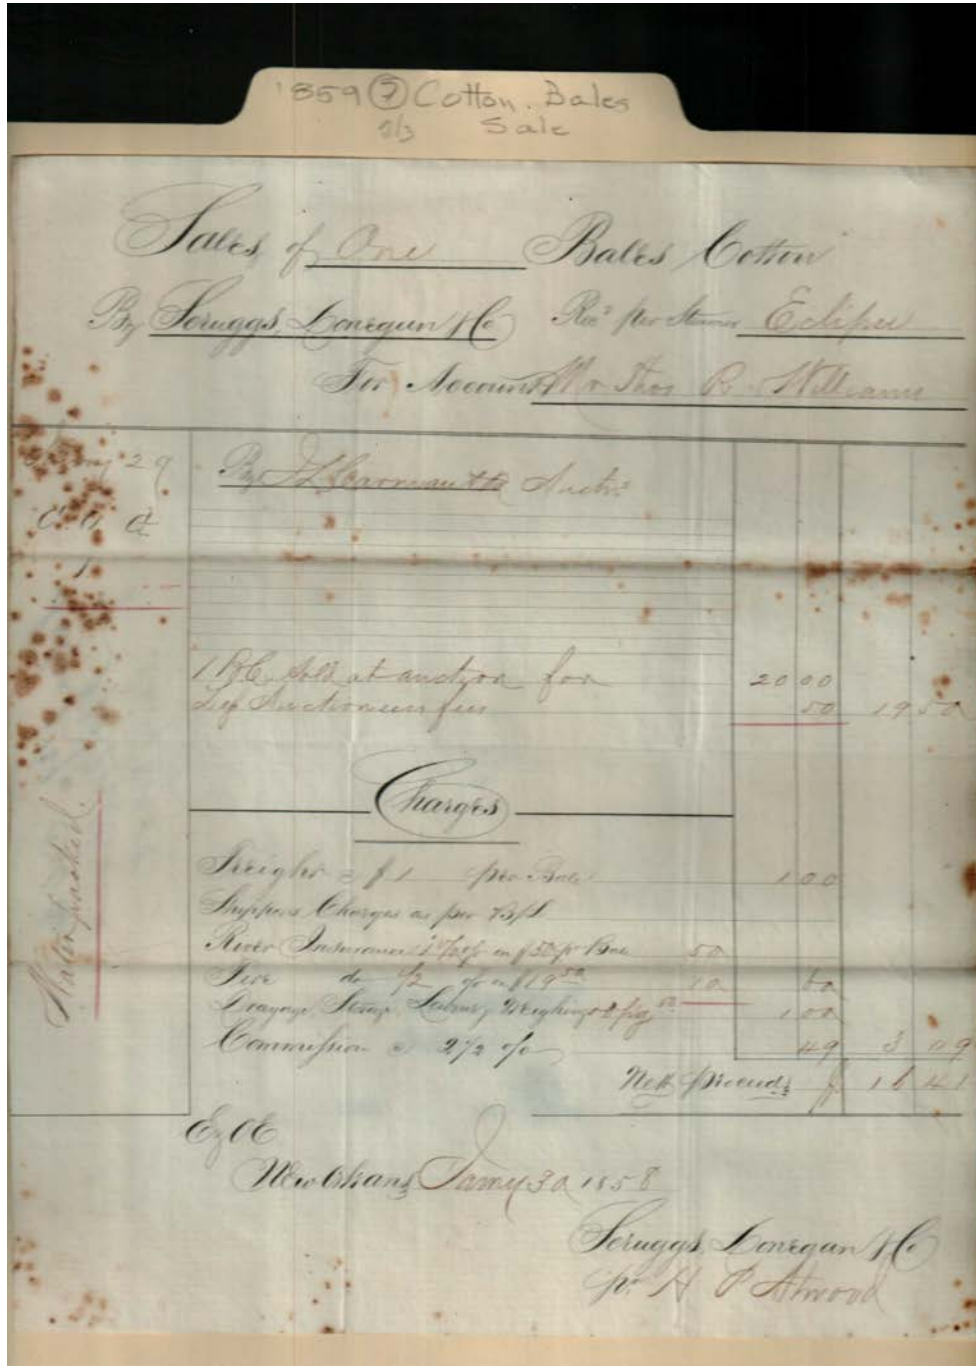 1859 (7) Cotton. Bales
2/3 Sale
Sales of One Bales Cotton
By Scruggs, Donegan & Co Recd per Steamer Eclipse
For Account Mr Thos R. Williams
29
By Auctr
1
1 B/C. Sold at auction for 20 00
Auctioneers fees 50 19 50
Charges
Freight @ $1 per Bale 1 00
Shippers Charges as per B/L
River Insurance % on $50 pr Bale 50
Fire do 1/2 % on $19 50 10 60
Drayage, Storage, Labor, Weighing 1 00
Commission @ 2 1/2 % 49 3 09
Nett proceeds $ 16 41
Water packed.
E, O E
New Orleans, Jany 30 1858
Scruggs, Donegan & Co
pr. H P Atwood